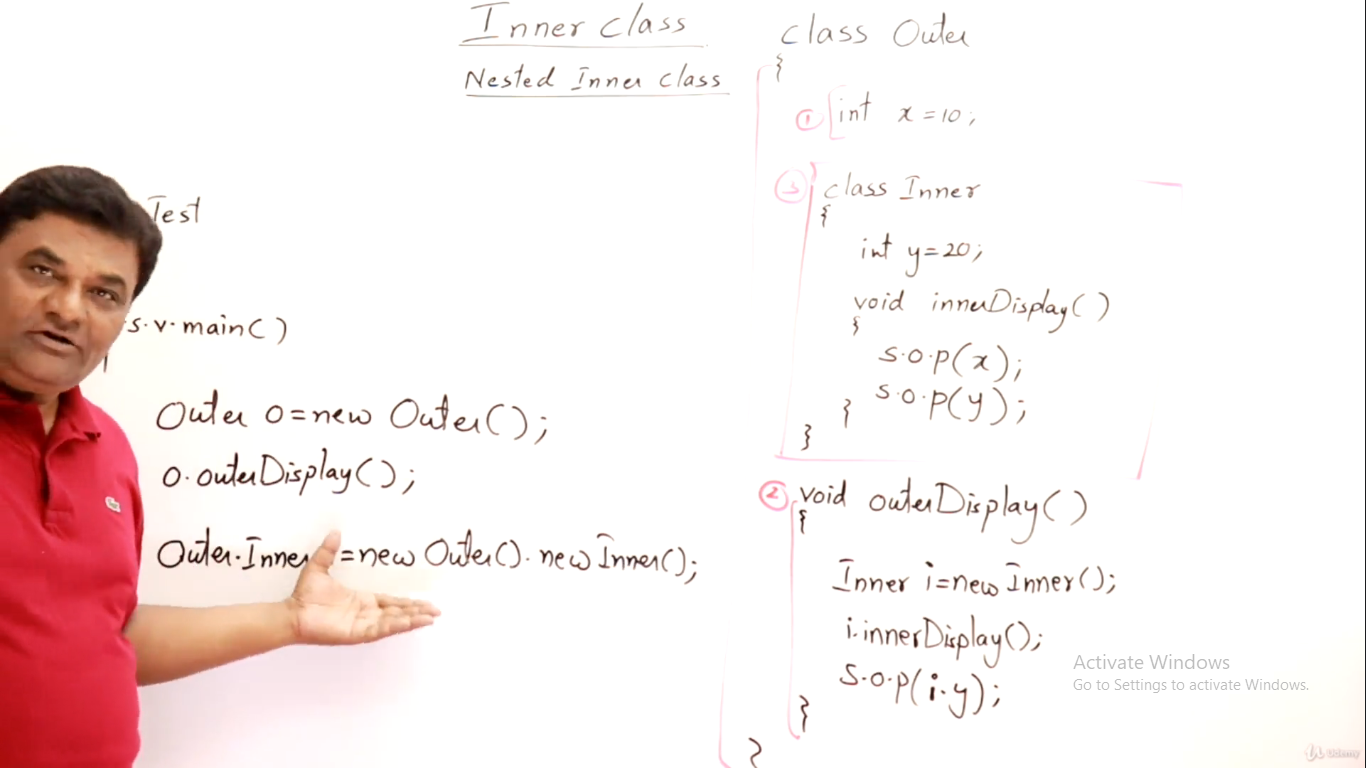 Inner class
Nested Inner class
Test
s.v.main()
Outer o=new Outer();
o.outerDisplay();
Outer.Inner =new Outer().new Inner();
class Outer
{
① int x=10;
③ class Inner
{
int y=20;
void innerDisplay()
{
s.o.p(x);
s.o.p(y);
}
}
② void outerDisplay()
{
Inner i=new Inner();
i.innerDisplay();
s.o.p(i.y);
}
}
Activate Windows
Go to Settings to activate Windows.
Udemy